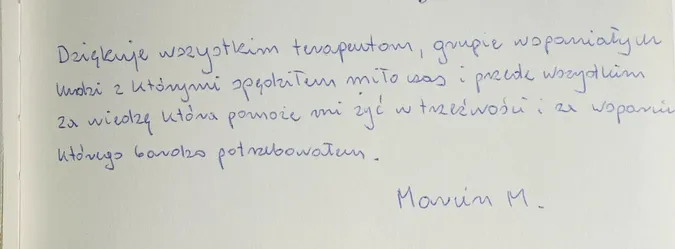 Dziękuje wszystkim terapeutom, grupie wspaniałych
ludzi z którymi spędziłem miło czas i przede wszystkim
za wiedzę która pomoże mi żyć w trzeźwości i za wsparcie
którego bardzo potrzebowałem.
Marcin M.